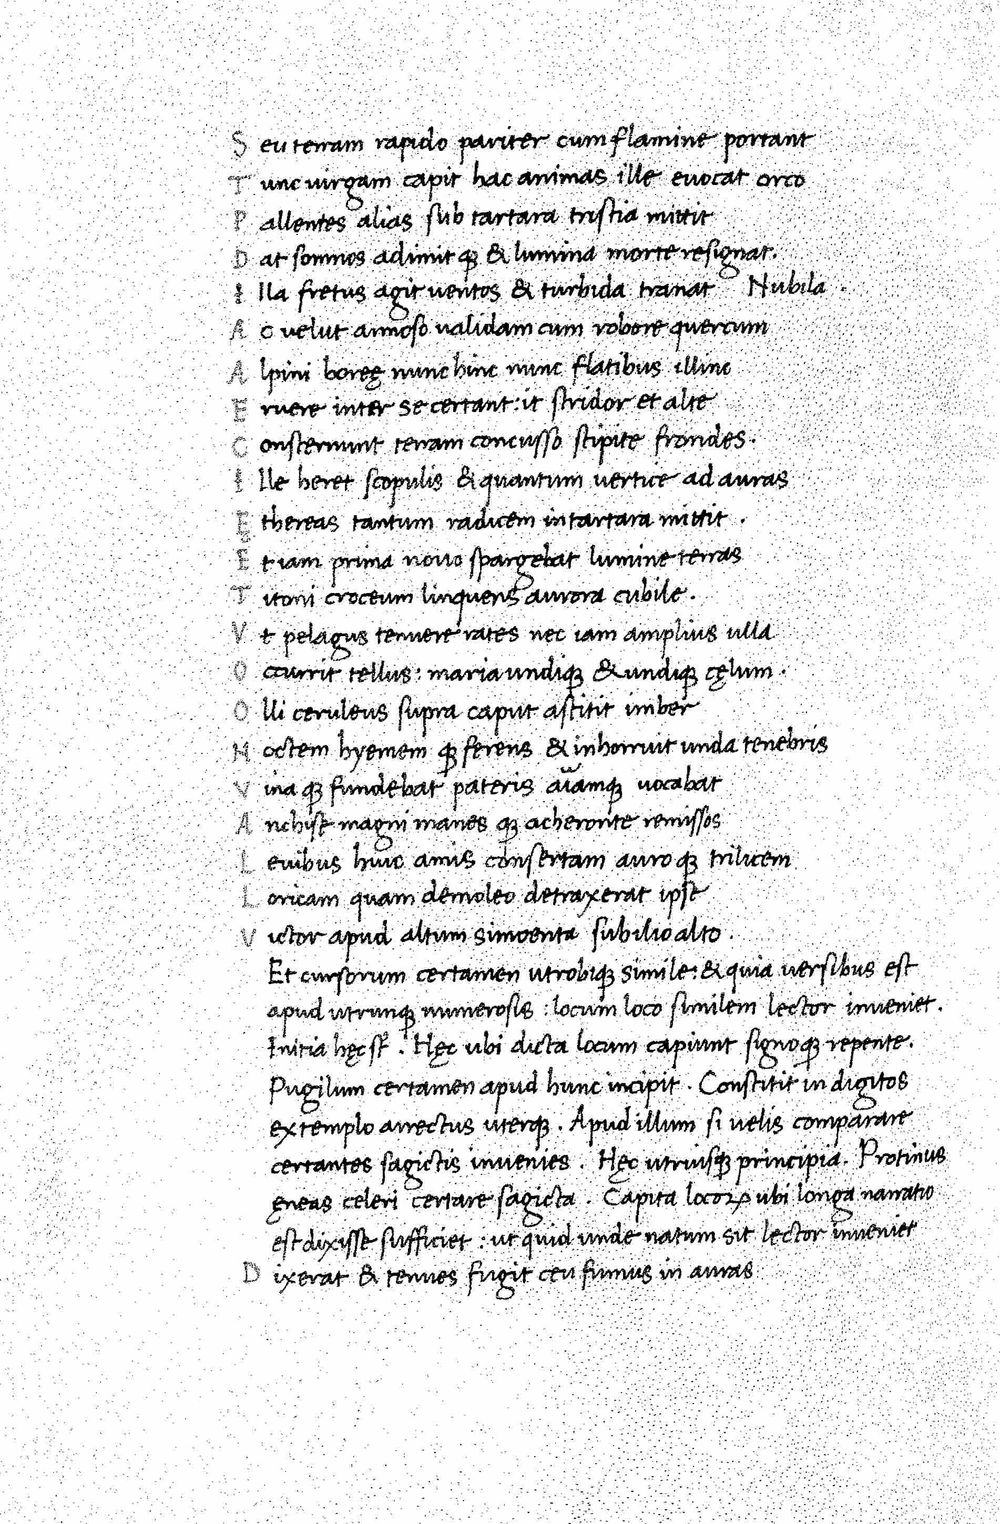 S eu terram rapido pariter cum flamine portant
T unc uirgam capit hac animas ille euocat orco
P allentes alias sub tartara tristia mittit
D at somnos adimit q; & lumina morte resignat.
I lla fretus agit uentos & turbida tranat Nubila .
A c uelut annoso ualidam cum robore quercum
A lpini boreę nunc hinc nunc flatibus illinc
E ruere inter se certant: it stridor et alte
C onsternunt terram concusso stipite frondes.
I lle heret scopulis & quantum uertice ad auras
E thereas tantum radicem in tartara mittit .
E t iam prima nouo spargebat lumine terras
T itoni croceum linquens aurora cubile .
V t pelagus tenuere rates nec iam amplius ulla
O ccurrit tellus : maria undiq; & undiq; cęlum .
O lli ceruleus supra caput astitit imber
N octem hyemem q; ferens & inhorruit unda tenebris
V ina q; fundebat pateris aīamq; uocabat
A nchisę magni manes q; acheronte remissos
L euibus huic amis consertam auro q; trilicem
L oricam quam demoleo detraxerat ipse
V ictor apud altum simoenta sub ilio alto .
Et cursorum certamen utrobiq; simile: & quia uersibus est
apud utrunq; numerosis : locum loco similem lector inueniet .
Initia hęc st̄ . Hęc ubi dicta locum capiunt signoq; repente.
Pugilum certamen apud hunc incipit . Constitit in digitos
extemplo arrectus uterq; . Apud illum si uelis comparare
certantes sagictis inuenies . Hęc utriusq; principia . Protinus
ęneas celeri certare sagicta . Capita locoꝝ ubi longa narratio
est dixisse sufficiet : ut quid unde natum sit lector inueniet
D ixerat & tenues fugit ceu fumus in auras